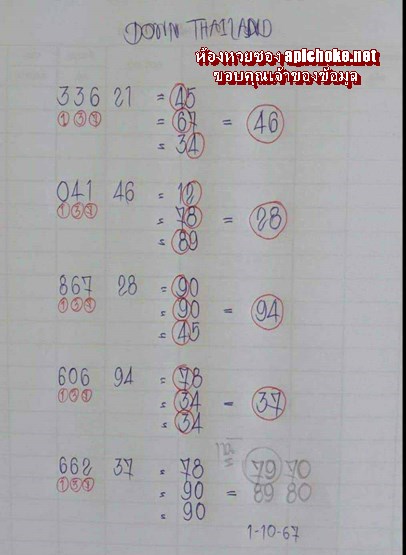 DOWN THAILAND
ห้องหวยซอง apichoke.net
ขอบคุณเจ้าของข้อมูล
336 21 = 45
137 = 67 = 46
= 34
041 46 = 12
137 = 78 = 28
= 89
867 28 = 90
137 = 90 = 94
= 45
606 94 = 78
137 = 34 = 37
= 34
662 37 = 78 79 70
137 = 90 = 89 80
= 90
1-10-67